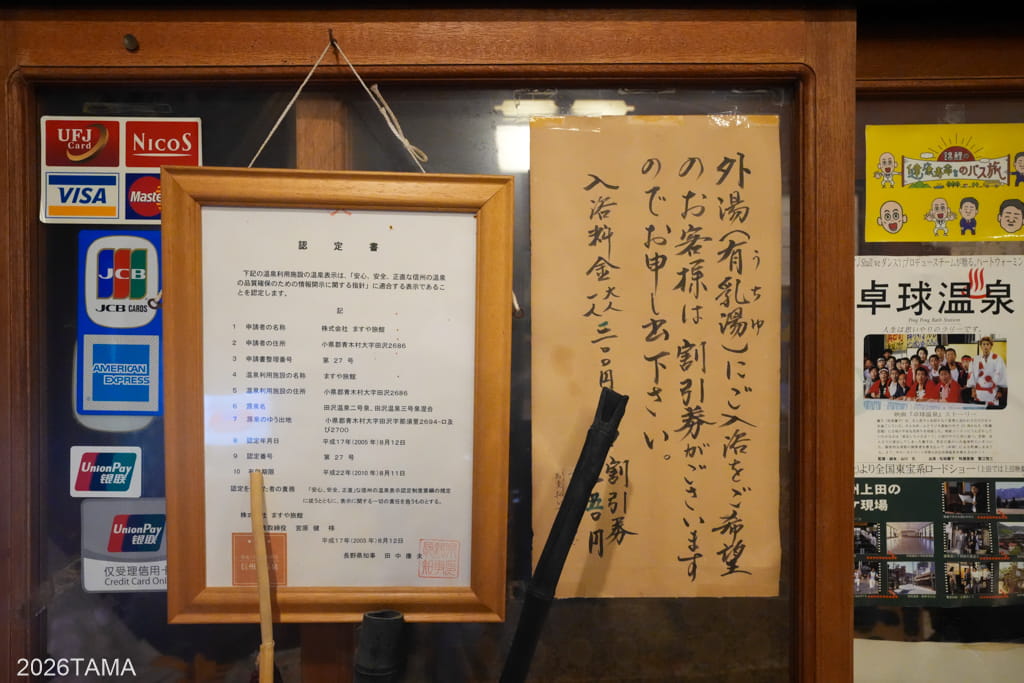 UFJ
Card
NICOS
VISA
Master
JCB
JCB CARDS
AMERICAN
EXPRESS
UnionPay
银联
UnionPay
银联
仅受理信用卡
Credit Card Only
認定書
下記の温泉利用施設の温泉表示は、「安心、安全、正直な信州の温泉
の品質確保のための情報開示に関する指針」に適合する表示であるこ
とを認定します。
記
1 申請者の名称 株式会社 ますや旅館
2 申請者の住所 小県郡青木村大字田沢2686
3 申請書整理番号 第 27 号
4 温泉利用施設の名称 ますや旅館
5 温泉利用施設の住所 小県郡青木村大字田沢2686
6 源泉名 田沢温泉二号泉、田沢温泉三号泉混合
7 源泉のゆう出地 小県郡青木村大字田沢字那須里2694-ロ及
び2700
8 認定年月日 平成17年(2005年)8月12日
9 認定番号 第 27 号
10 期限 平成22年(2010年)8月11日
認定を た者の責務 「安心、安全、正直」な信州の温泉表示認定制度要綱の規定
に従うとともに、表示に関する一切の責任を負うものとする。
株式会社 ますや旅館
取締役 宮原 健
平成17年(2005年)8月12日
長野県知事 田中 康夫
外湯(有乳湯)にご入浴をご希望
うちゆ
のお客様は割引券がございます
のでお申し出下さい。
入浴料金 大人一人 三〇〇円
割引券 五〇円
錦鯉の
バス旅
Shall we ダンス?プロデュースチームが贈る、ハートウォーミン
卓球温泉
Ping Pong Bath Station
人生は思いやりのラリーです。
映画『卓球温泉』ストーリー
より全国東宝系ロードショー
州上田の
ケ現場
2026TAMA